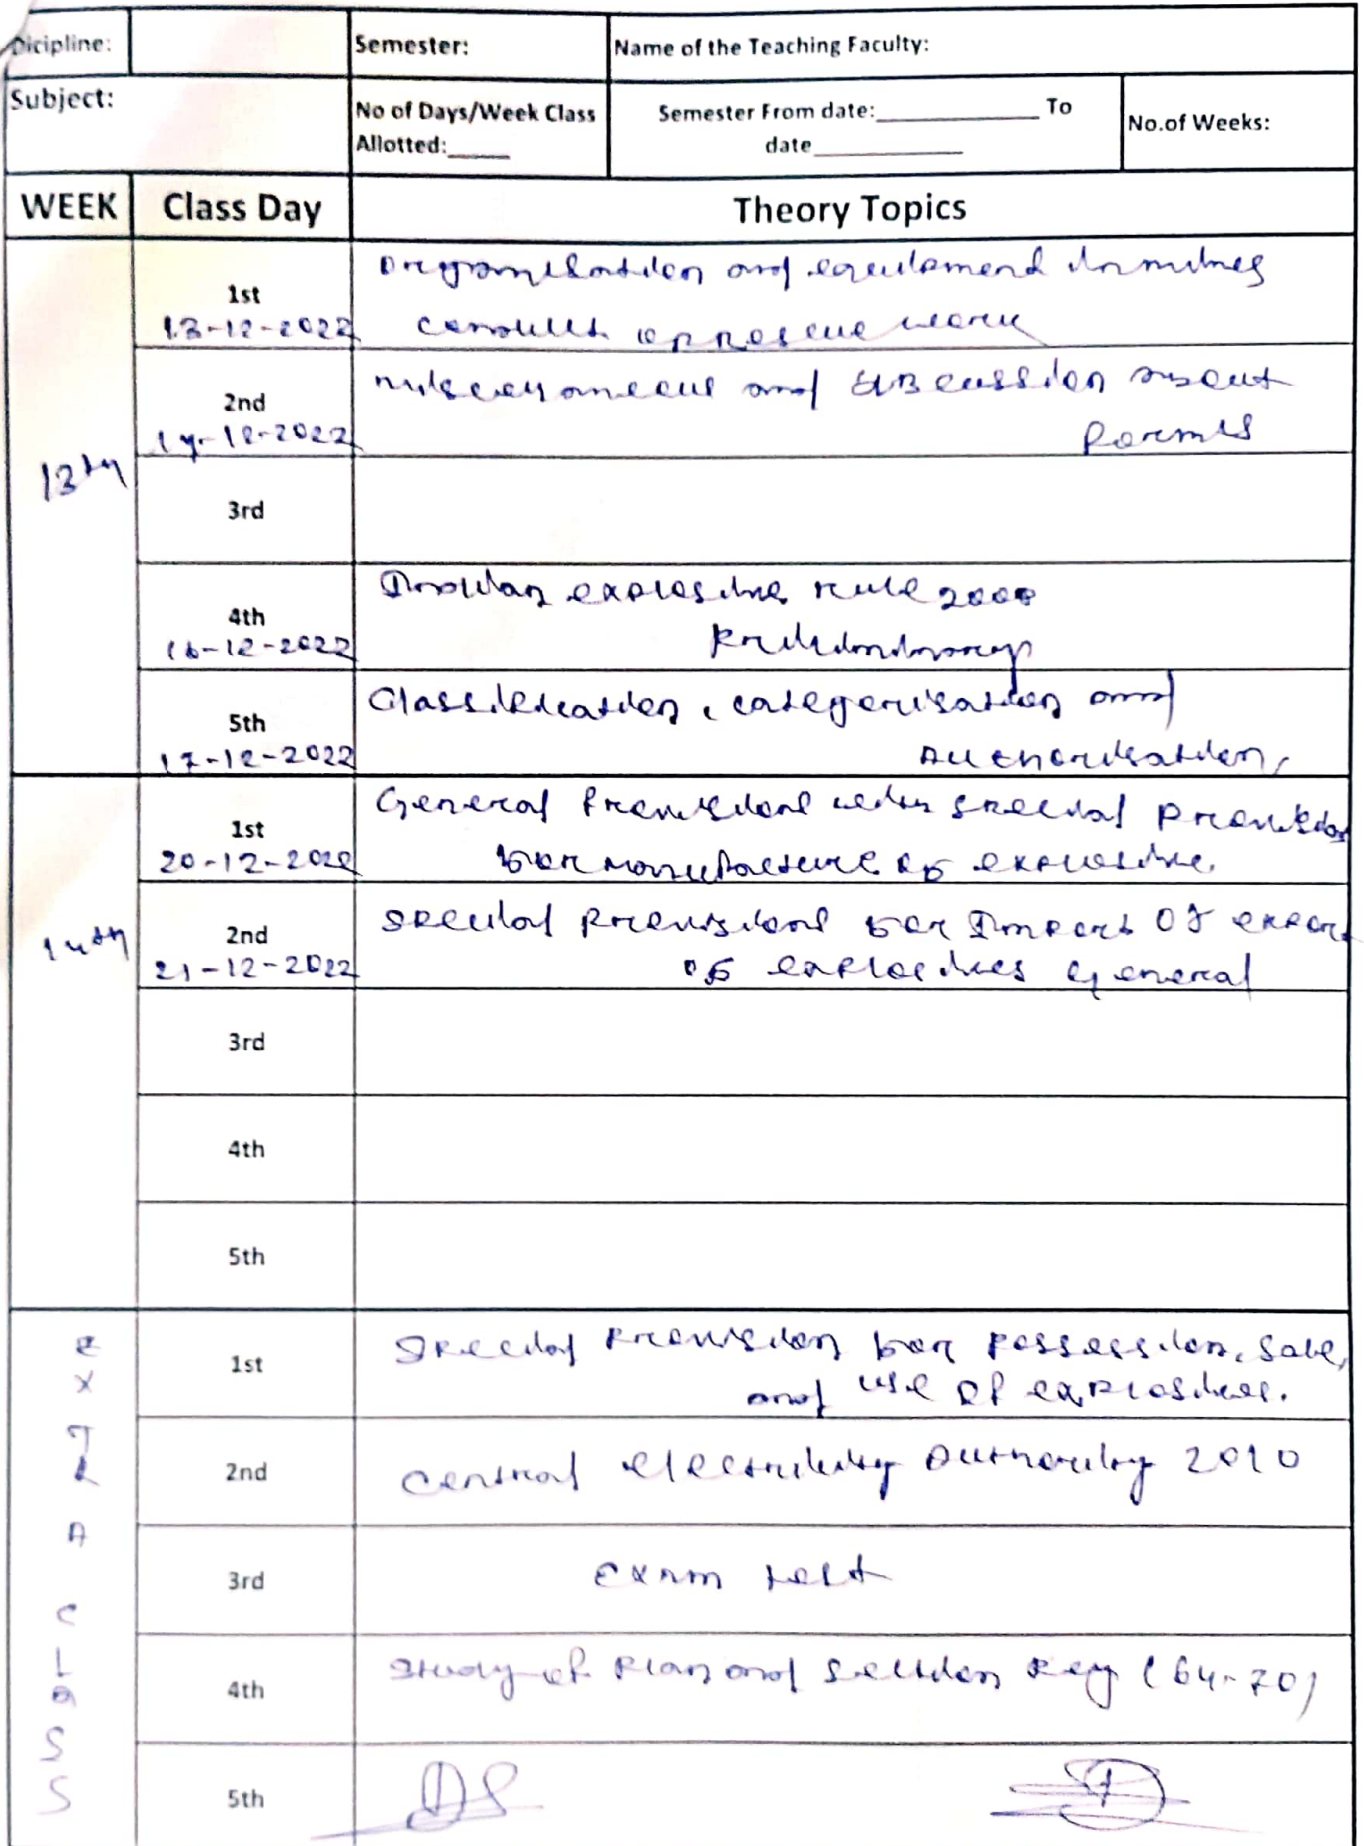 Dicipline:
Semester:
Name of the Teaching Faculty:
Subject:
No of Days/Week Class
Allotted:_____
Semester From date:_____________ To
date____________
No.of Weeks:
WEEK
Class Day
Theory Topics
13th
1st
13-12-2022
Organisation and equipment in mines
conduct of rescue work
2nd
14-12-2022
miscellaneous and discussion about
Forms
3rd
4th
16-12-2022
Indian explosive rule 2008
Preliminary
5th
17-12-2022
Classification, categorisation and
Authorisation,
14th
1st
20-12-2022
General Provisions special Provision
for manufacture of explosive.
2nd
21-12-2022
special provisions for Import export
of explosives General
3rd
4th
5th
EXTRA CLASS
1st
Special Provision for Possession, Sale,
and use of explosives.
2nd
Central electricity Authority 2010
3rd
Exam test
4th
Study of Plan and Section Reg (64-70)
5th